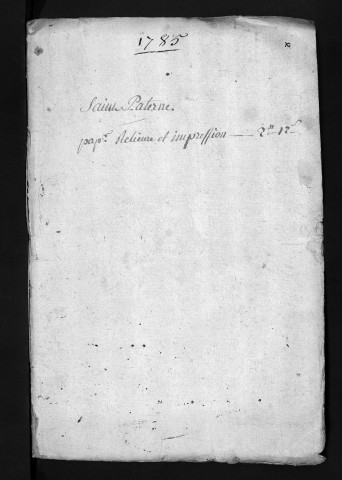 1785
Saint Paterne.
pap.r Relieure et impression — 2# 12s